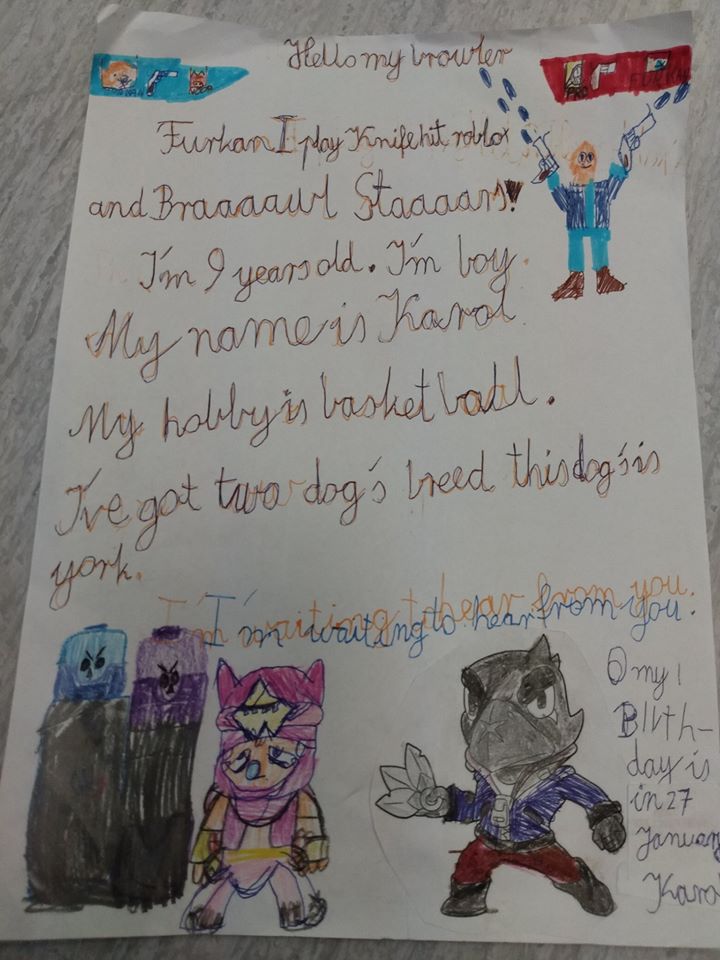 Hello my browler
PRO
Furkan I play Knifehit roblox
and Braaaawl Staaaars!
I'm 9 years old. I'm boy.
My name is Karol
My hobby is basket ball.
I've got two dog's breed this dog's is
york.
I'm waiting to hear from you.
O my
Birthday is
in 27
January
Karol